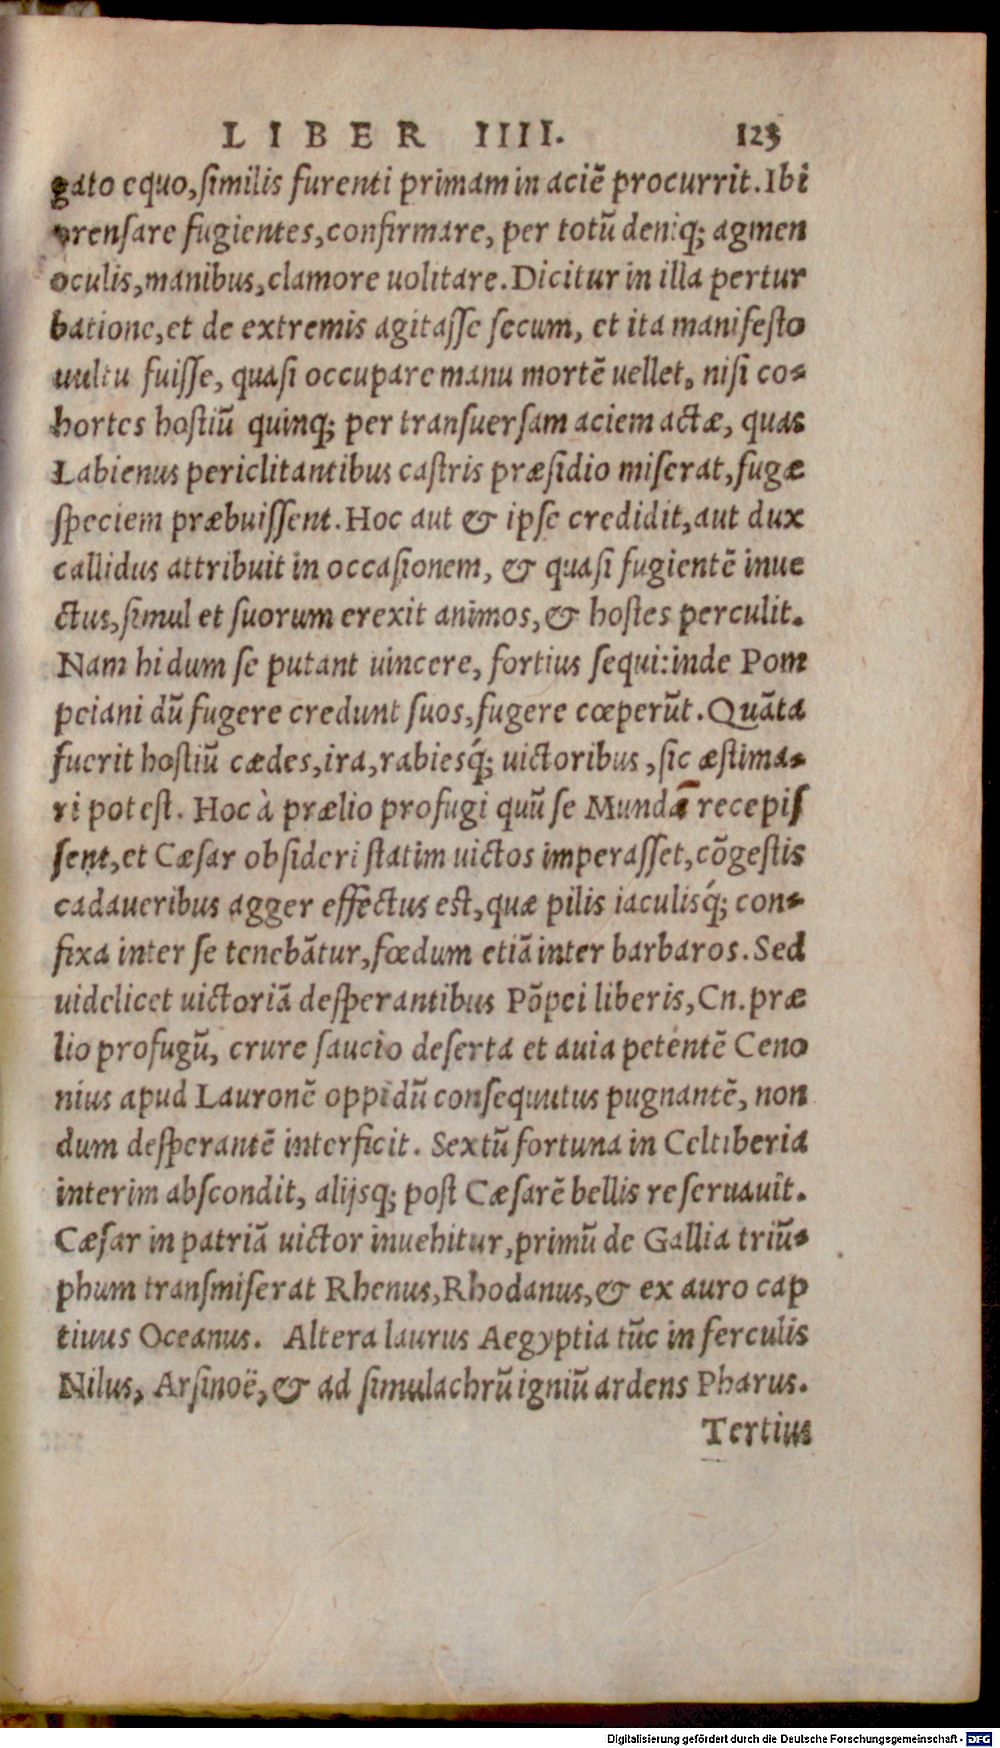 LIBER IIII. 123
gato equo, similis furenti primam in aciẽ procurrit. Ibi
prensare fugientes, confirmare, per totũ deniq; agmen
oculis, manibus, clamore uolitare. Dicitur in illa pertur
batione, et de extremis agitasse secum, et ita manifesto
uultu fuisse, quasi occupare manu mortẽ uellet, nisi co-
hortes hostiũ quinq; per transuersam aciem actæ, quas
Labienus periclitantibus castris præsidio miserat, fugæ
speciem præbuissent. Hoc aut & ipse credidit, aut dux
callidus attribuit in occasionem, & quasi fugientẽ inue
ctus, simul et suorum erexit animos, & hostes perculit.
Nam hi dum se putant uincere, fortius sequi: inde Pom
peiani dũ fugere credunt suos, fugere cœperũt. Quãta
fuerit hostiũ cædes, ira, rabiesq́; uictoribus, sic æstima-
ri potest. Hoc à prælio profugi quũ se Mundã recepis
sent, et Cæsar obsideri statim uictos imperasset, cõgestis
cadaueribus agger effectus est, quæ pilis iaculisq́; con-
fixa inter se tenebãtur, fœdum etiã inter barbaros. Sed
uidelicet uictoriã desperantibus Põpei liberis, Cn. præ
lio profugũ, crure saucio deserta et auia petentẽ Ceno
nius apud Lauronẽ oppidũ consequutus pugnantẽ, non
dum desperantẽ interficit. Sextũ fortuna in Celtiberia
interim abscondit, alijsq; post Cæsarẽ bellis reseruauit.
Cæsar in patriã uictor inuehitur, primũ de Gallia triũ-
phum transmiserat Rhenus, Rhodanus, & ex auro cap
tiuus Oceanus. Altera laurus Aegyptia tũc in ferculis
Nilus, Arsinoë, & ad simulachrũ igniũ ardens Pharus.
Tertius
Digitalisierung gefördert durch die Deutsche Forschungsgemeinschaft - DFG